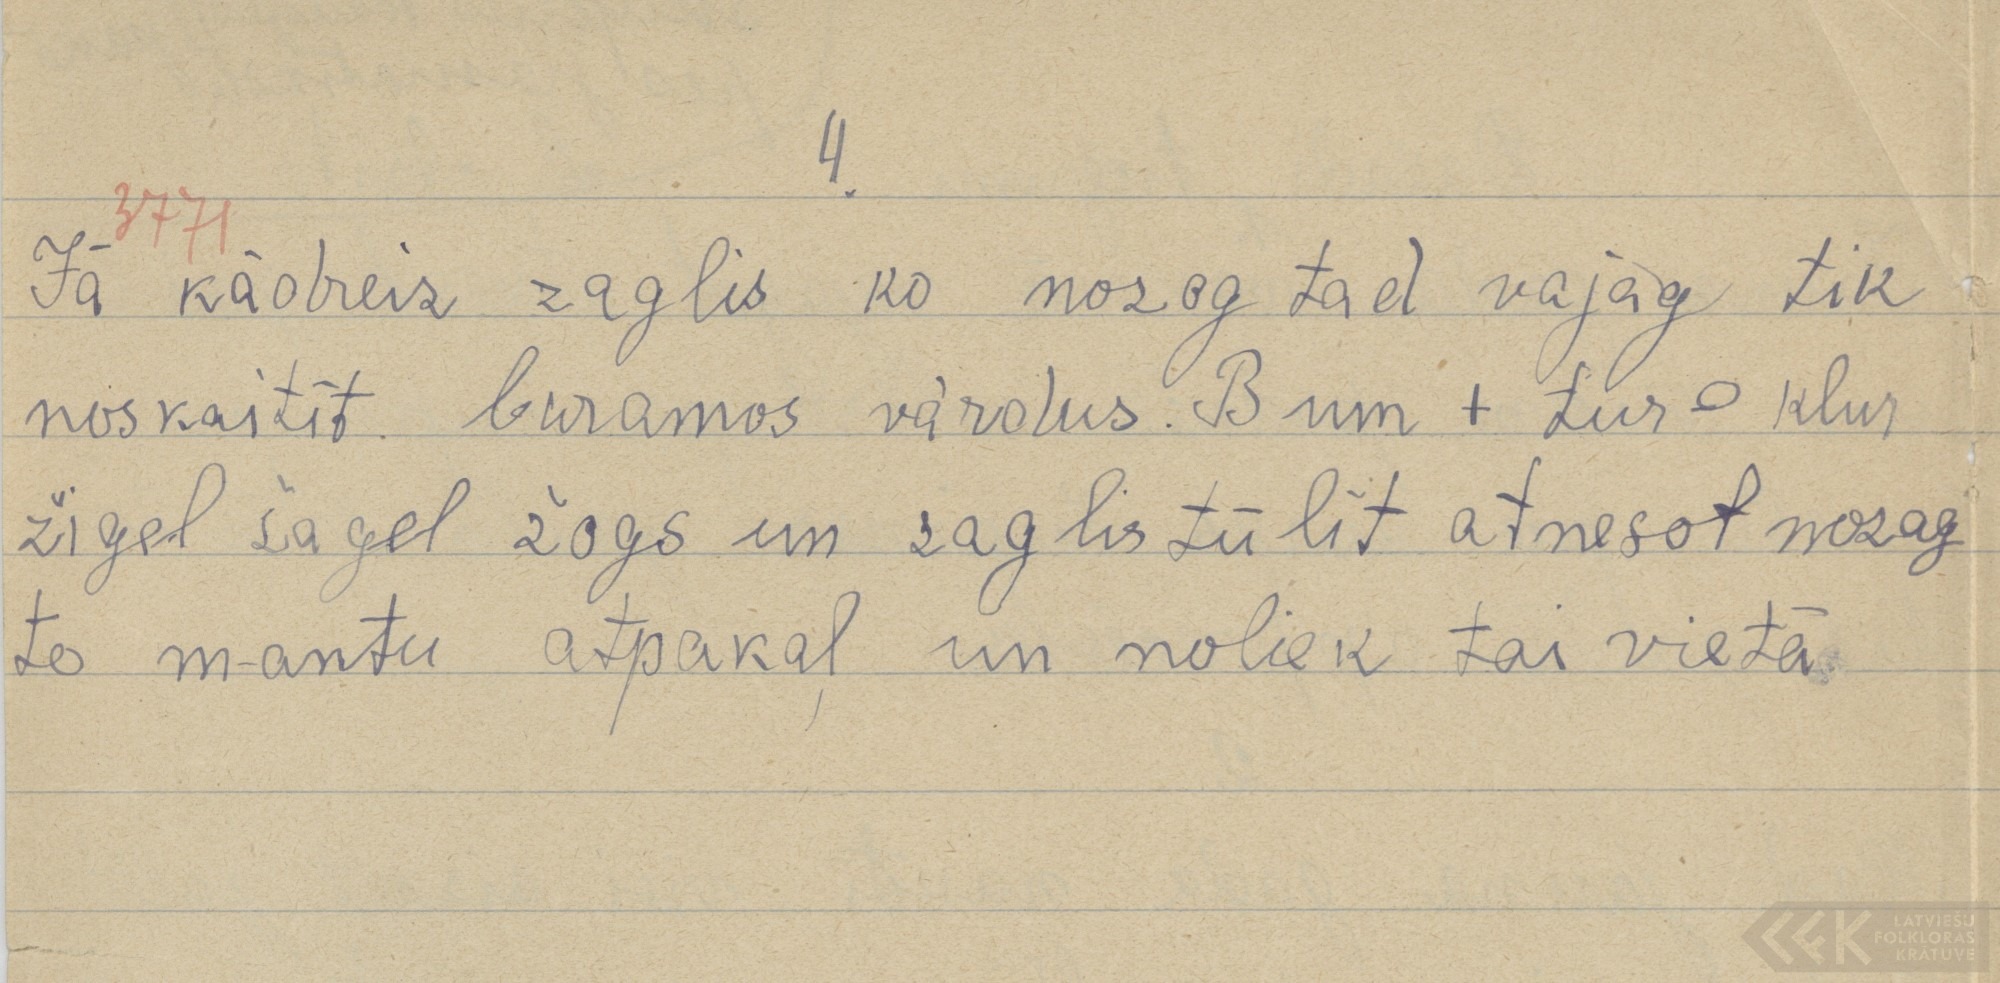 4.
3771
Jā kādreiz zaglis ko nozog tad vajag tik
noskaitīt. buramos vārdus. Bum + tur o klur
žigel šagel žogs un zaglis tūlīt atnesot nozag
to mantu atpakaļ un noliek tai vietā
LATVIEŠU
FOLKLORAS
KRĀTUVE